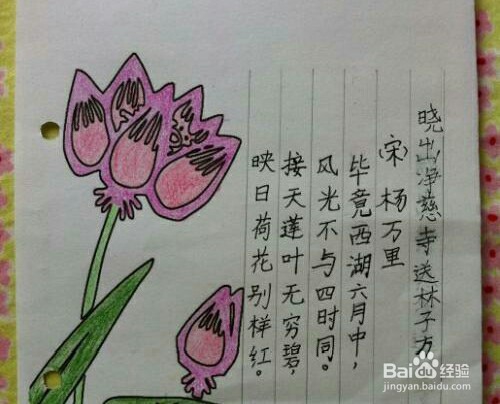 晓出净慈寺送林子方
(宋)杨万里
毕竟西湖六月中，
风光不与四时同。
接天莲叶无穷碧，
映日荷花别样红。
Baidu经验
jingyan.baidu.com